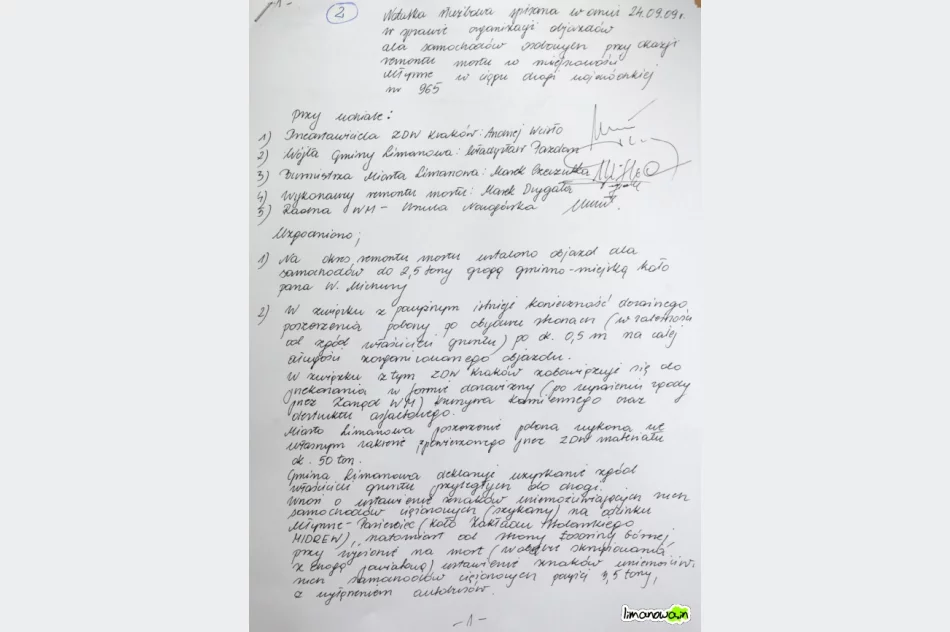 2
Notatka służbowa spisana w dniu 24.09.09r.
w sprawie organizacji objazdów
dla samochodów osobowych przy okazji
remontu mostu w miejscowości
Młynne w ciągu drogi wojewódzkiej
nr 965
przy udziale:
1) Przedstawiciela ZDW Kraków: Andrzej
2) Wójta Gminy Limanowa: Władysław Pazdan
3) Burmistrza Miasta Limanowa: Marek Czeczótka
4) Wykonawcy remontu mostu: Marek Drygała
5) Radna WM - Urszula Nowogórska
Uzgodniono;
1) Na okres remontu mostu ustalono objazd dla
samochodów do 2,5 tony drogą gminno-miejską koło
pana W.
2) W związku z powyższym istnieje konieczność doraźnego
poszerzenia pobocy po obydwu stronach (w zależności
od zgód właścicieli gruntu) po ok. 0,5 m na całej
długości zorganizowanego objazdu.
W związku z tym ZDW Kraków zobowiązuje się do
przekazania w formie darowizny (po wyrażeniu zgody
przez Zarząd WM) kruszywa kamiennego oraz
destruktu asfaltowego.
Miasto Limanowa poszerzenie pobocza wykona we
własnym zakresie z powierzonego przez ZDW materiału
ok. 50 ton.
Gmina Limanowa deklaruje uzyskanie zgód
właścicieli gruntu przyległych do drogi.
Wnosi o ustawienie znaków uniemożliwiających ruch
samochodów ciężarowych (szykany) na odcinku
Młynne - Pasierbiec (koło Zakładu Stolarskiego
MIDREW), natomiast od strony Łososiny Górnej
przy wjeździe na most (w obrębie skrzyżowania
z drogą powiatową) ustawienie znaków
ruch samochodów ciężarowych powyżej 3,5 tony,
z wyłączeniem autobusów.
-1-
limanowa.in